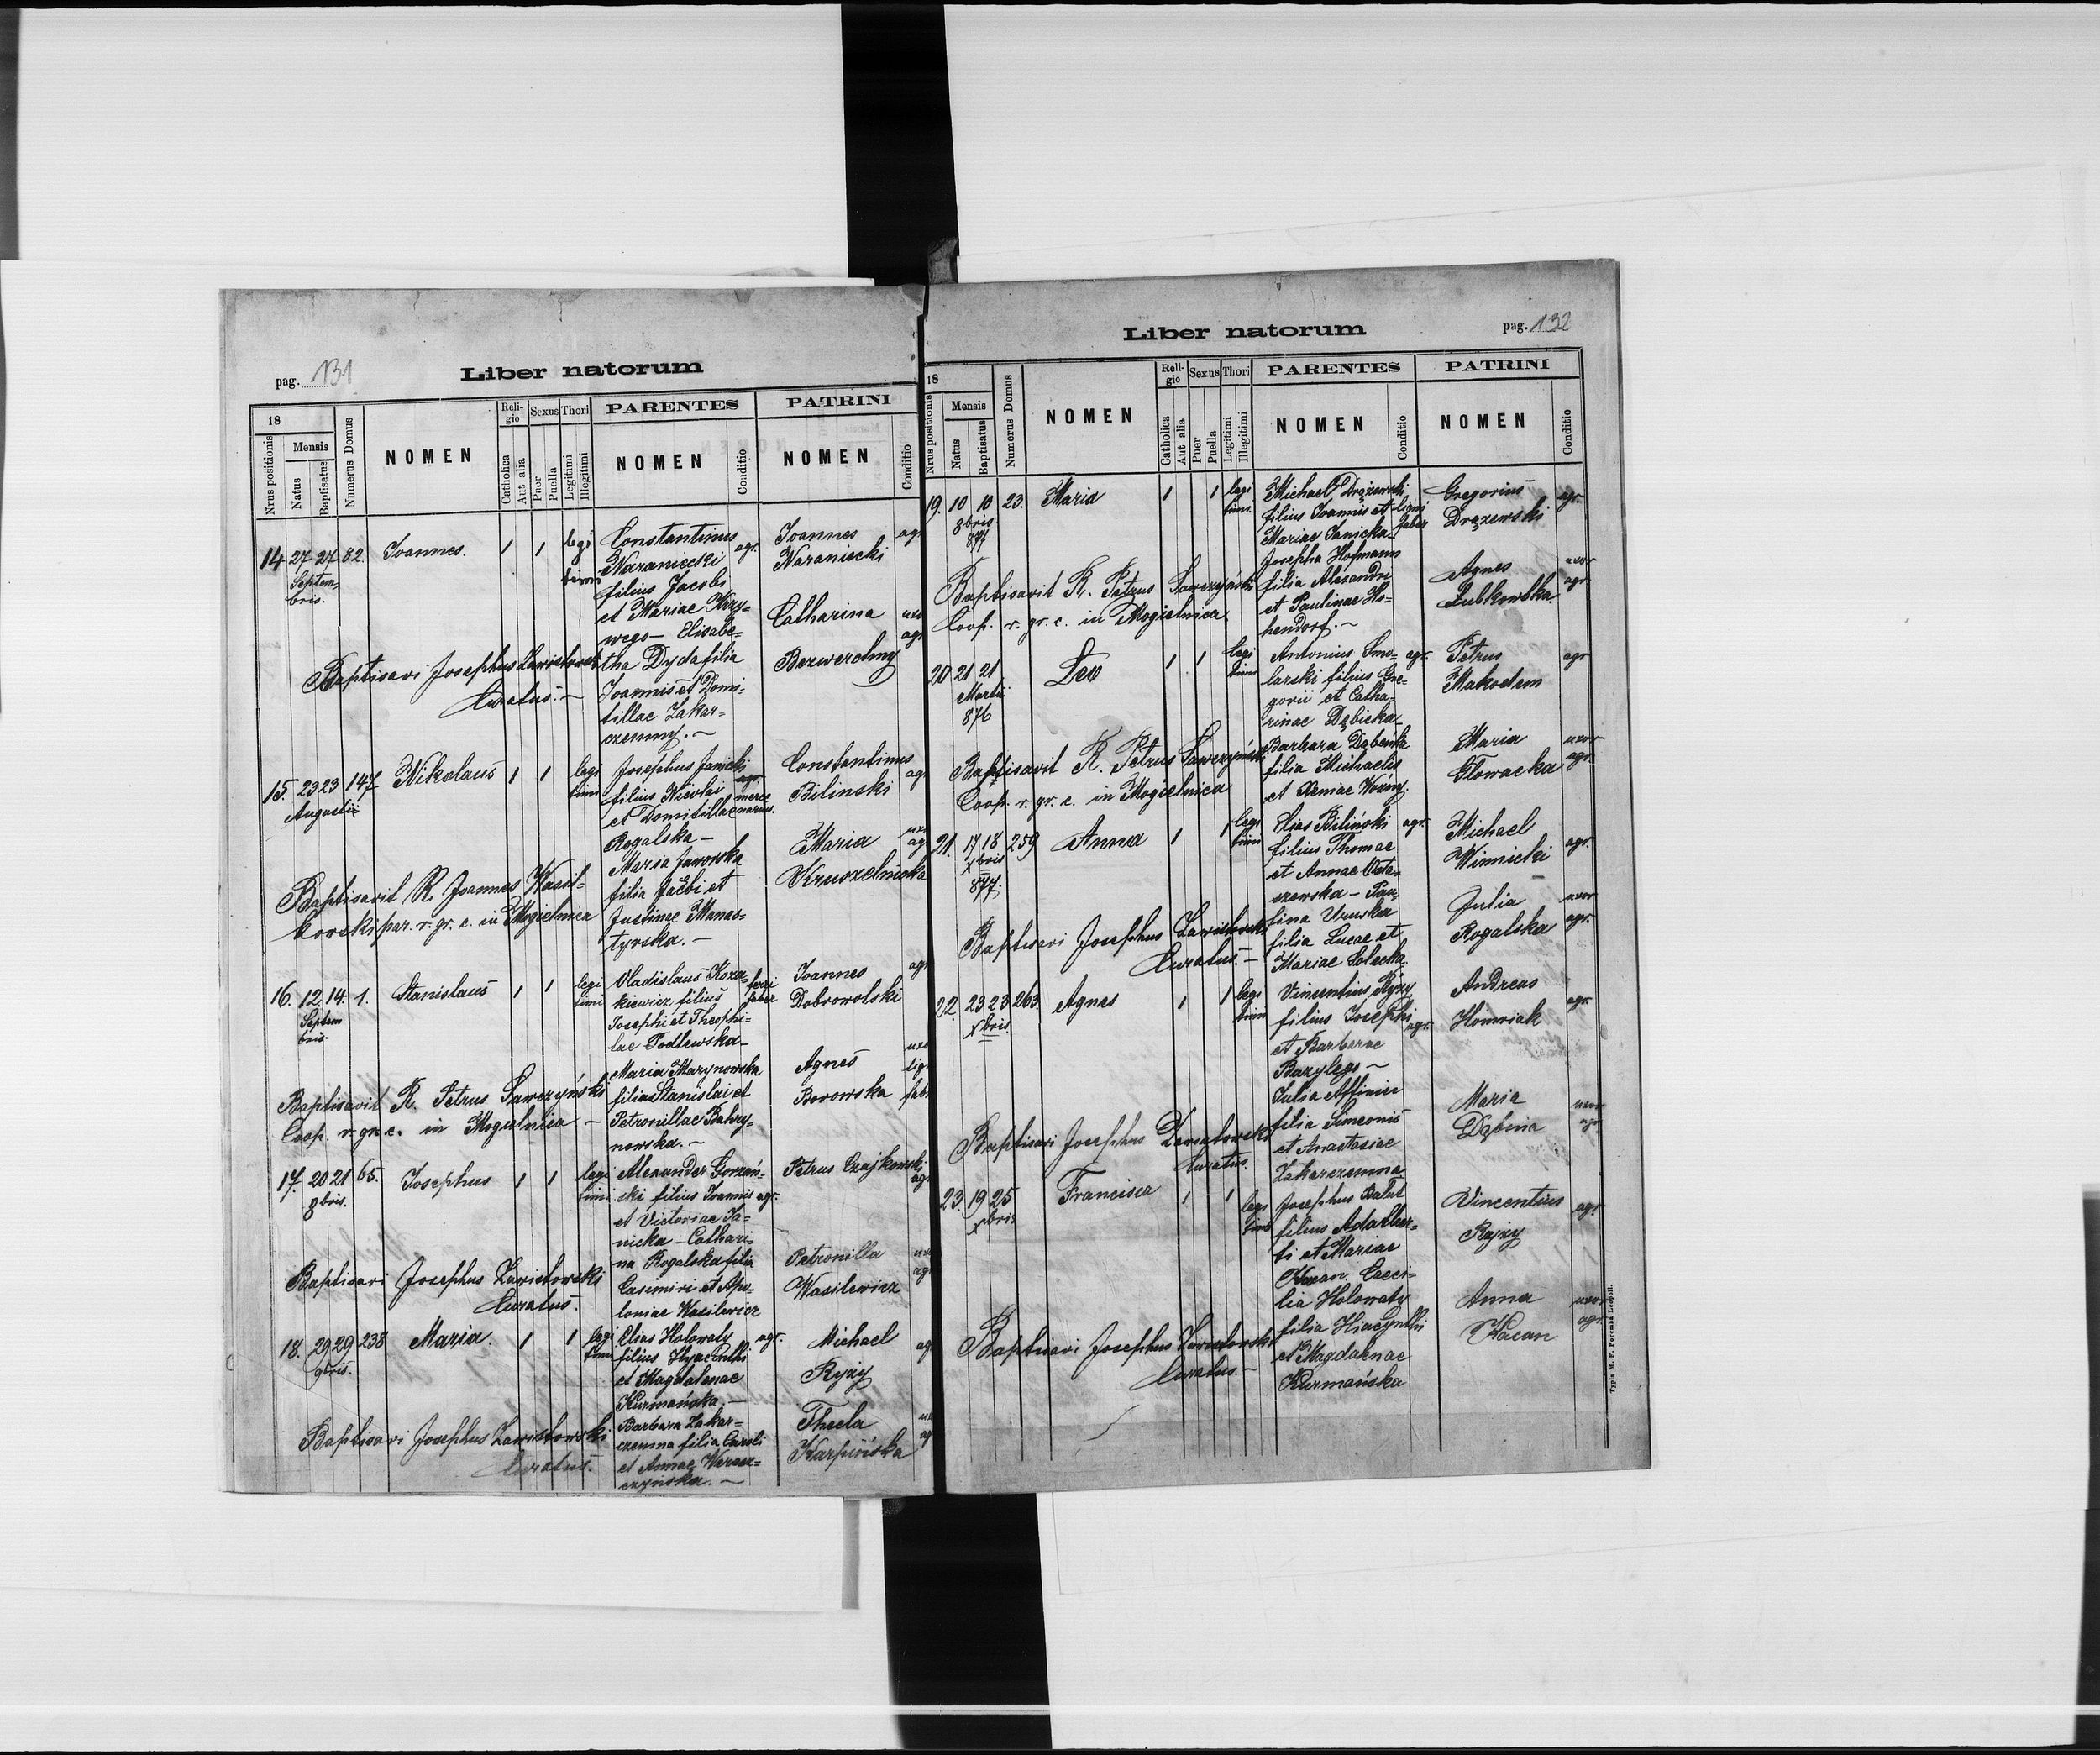 pag. 131
Liber natorum
18
Nrus positionis
Mensis
Natus
Baptisatus
Numerus Domus
NOMEN
Religio
Catholica
Aut alia
Sexus
Puer
Puella
Thori
Legitimi
Illegitimi
PARENTES
NOMEN
Conditio
PATRINI
NOMEN
Conditio
14 27 27 82. Joannes. 1 1 legi
timi
Septem,
bris.
Constantinus agr.
Naraniecki
filius Jacobi
et Mariae Krzy-
wego - Elisabe-
tha Dyda filia
Joannis et Domi-
tillae Zakar-
czemny. ~
Joannes agr
Naraniecki
Catharina
Bezwerchny
Baptisavi Josephus Zawistowski
Curatus. ~
15. 23 23 147 Nikolaus 1 1 legi
timi
Augusti
Josephus Janicki
filius Nicolai merce
et Domitillae narius.
Rogalska -
Maria Jaworska
filia Jacobi et
Justinae Manas-
tyrska. -
Constantinus
Bilinski agr
Maria
Kruszelnicka
Baptisavit R. Joannes Wasil-
kowski par. r. gr. c. in Mogielnica
16. 12. 14. 1. Stanislaus 1 1 legi
timi
Septem
bris.
Vladislaus Koza- ferri
kiewicz filius faber
Josephi et Theophi-
lae Podlewska -
Maria Marynowska
filia Stanislai et
Petronillae Bahry-
nowska. ~
Joannes agr
Dobrowolski
Agnes
Borowska
Baptisavit R. Petrus Sawczyński
Coop. r. gr. c. in Mogielnica -
17. 20 21 65. Josephus 1 1 legi
timi
8bris.
Alexander Gorzań-
ski filius Joannis agr.
et Victoriae Ja-
nicka - Cathari-
na Rogalska filia
Casimiri et Apo-
loniae Wasilewicz
Petrus Czajkowski
agr
Petronilla
Wasilewicz
Baptisavi Josephus Zawistowski
Curatus.
18. 29 29 238 Maria. 1 1 legi
timi
9bris.
Elias Holowaty agr.
filius Hyacinthi
et Magdalenae
Kurmańska. -
Barbara Zakar-
czemna filia Caroli
et Annae Weresz-
czyńska. ~
Michael
Ryzy
Thecla
Karpińska
Baptisavi Josephus Zawistowski
Curatus. -
Liber natorum
pag. 132
18
Nrus positionis
Mensis
Natus
Baptisatus
Numerus Domus
NOMEN
Religio
Catholica
Aut alia
Sexus
Puer
Puella
Thori
Legitimi
Illegitimi
PARENTES
NOMEN
Conditio
PATRINI
NOMEN
Conditio
19. 10 10 23. Maria 1 1 legi
timi.
8bris
877
Michael Drążewski
filius Joannis et ligni
Mariae Janicka - faber
Josepha Hofmann
filia Alexandri
et Paulinae Ho-
hendorf. ~
Gregorius agr.
Drązewski
Agnes uxor
Zubkowska. agr.
Baptisavit R. Petrus Sawczyński
Coop. r. gr. c. in Mogielnica
20 21 21 Leo 1 1 legi
timi
Martii
876
Antonius Smo- agr.
larski filius Gre-
gorii et Catha-
rinae Dąbicka -
Barbara Dąbeńka
filia Michaelis
et Xeniae Woźny.
Petrus agr
Makodem
Maria uxor
Głowacka agr.
Baptisavit R. Petrus Sawczyński
Coop. r. gr. c. in Mogielnica
21. 17 18 259 Anna 1 1 legi
timi
Xbris
877.
Elias Biliński agr.
filius Thomae
et Annae Osta-
szewska - Pau-
lina Uruska
filia Lucae et
Mariae Solecka.
Michael
Winnicki agr.
Julia uxor
Rogalska agr.
Baptisavi Josephus Zawistowski
Curatus. -
22. 23 23 263. Agnes 1 1 legi
timi
Xbris.
Vincentius Ryzy
filius Josephi agr.
et Barbarae
Bazylego ~
Julia Affinicz
filia Simeonis
et Anastasiae
Zakarczemna
Andreas
Homniak agr.
Maria uxor
Dąbina agr.
Baptisavi Josephus Zawistowski
Curatus.
23. 19 25 Francisca 1 1 legi
timi
Xbris
Josephus Balut
filius Adalber-
ti et Mariae
Kacan. Caeci-
lia Holowaty
filia Hiacynthi
et Magdalenae
Kurmańska
Vincentius agr
Ryzy
Anna uxor
Kacan agr.
Baptisavi Josephus Zawistowski
Curatus. -
Typis M. F. Poremba Leopoli.